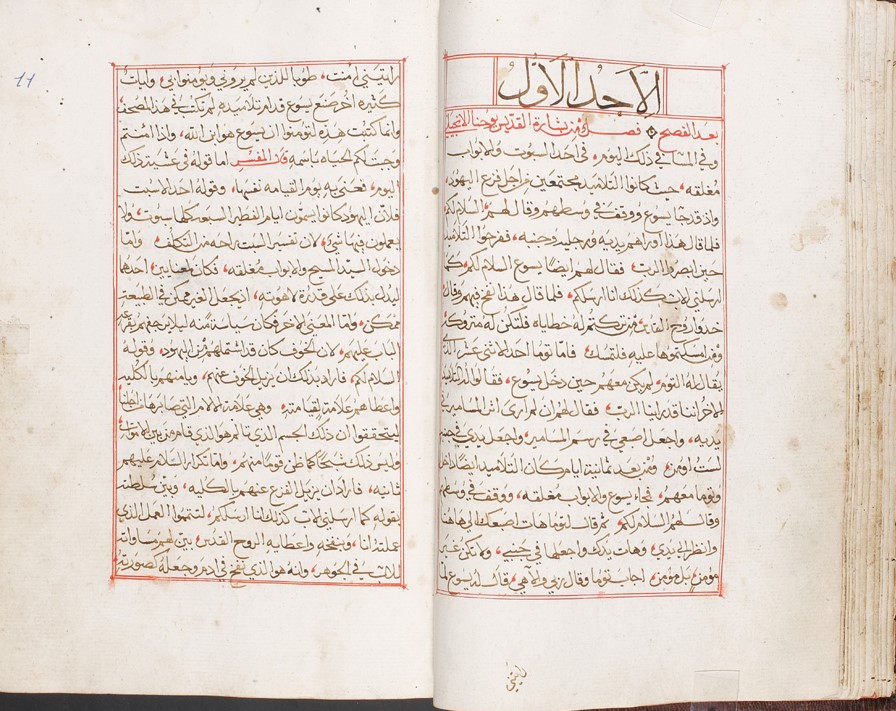 الاحد الاول
بعد الفصح فصل من بشارة القديس يوحنا الانجيلي
وفي المسا في ذلك اليوم، في احد السبوت والابواب
مغلقه، حيث كانوا التلاميذ مجتمعين من اجل فزع اليهود،
واذ قد جا يسوع ووقف في وسطهم وقال لهم السلام لكم
فلما قال هذا اوراهم يديه ورجليه وجنبه، ففرحوا التلاميذ
حين ابصروا الرب، فقال لهم ايضا يسوع السلام لكم، كما
ارسلني الاب كذلك انا ارسلكم، فلما قال هذا نفخ فيهم وقال
خذوا روح القدس، من تركتم له خطاياه فلتكن له متروكه
ومن امسكتموها عليه فلتمسك، فاما توما احد الاثنى عشر الذي
يقال له التوم، لم يكن معهم حين دخل يسوع، فقالوا له التلاميذ
الاخر اننا قد راينا الرب، فقال لهم ان لم ارى اثر المسامير في
يديه، واجعل اصبعي في رسم المسامير، واجعل يدي في جنبه
لست اومن، ومن بعد ثمانية ايام كان التلاميذ ايضا داخل
وتوما معهم، فجا يسوع والابواب مغلقه، ووقف في وسطهم
وقال لهم السلام لكم، ثم قال لتوما هات اصبعك الى هاهنا
وانظر الى يدي، وهات يدك واجعلها في جنبي، ولا تكن غير
مومن، بل مومن، اجاب توما وقال ربي والاهي، قال له يسوع لما
راتني
11
رايتني امنت، طوبا للذين لم يروني ويؤمنوا بي، وايات
كثيره اخر صنع يسوع قدام تلاميذه لم تكتب في هذا المصحف
وانما كتبت هذه لتؤمنوا ان يسوع هو ابن الله، واذا امنتم
وجبت لكم الحياه باسمه قال المفسر اما قوله في عشية ذلك
اليوم، فعنى به يوم القيامه نفسها، وقوله احد السبت
فلان اليهود كانوا يسمون ايام الفطير السبعه كلها سبوت، ولا
يعملون فيها شي، لان تفسير السبت راحه من التكلف، واما
دخول السيد المسيح والابواب مغلقه، فكان لمعنايين، احدهما
ليدل بذلك على قدرة لاهوته، اذ يجعل الغير ممكن في الطبيعه
ممكن، واما المعنى الاخر فكان سياسة منه ليلا يزعجهم بقرعه
الباب عليهم، لان الخوف كان قد اشتملهم من اليهود، وقوله
السلام لكم، فاراد بذلك ان يزيل الخوف عنهم، ويامنهم بالكليه
واعطاهم علامة لقيامته، وهي علامة الالام التي صابرها
ليتحققوا ان ذلك الجسم الذي تالم هو الذي قام من بين الاموات
وليس ذلك شبحا كما ظن قوما منهم، واما تكرار السلام عليهم
ثانيه، فاراد ان يزيل الفزع عنهم بالكليه، وبين سلطته
بقوله كما ارسلني الاب كذلك انا ارسلكم، لتتموا العمل الذي
عملته انا، وبنفخه واعطايه الروح القدس، بين لهم مساواته
للاب في الجوهر، وانه هو الذي نفخ في ادم وجعله كصورته